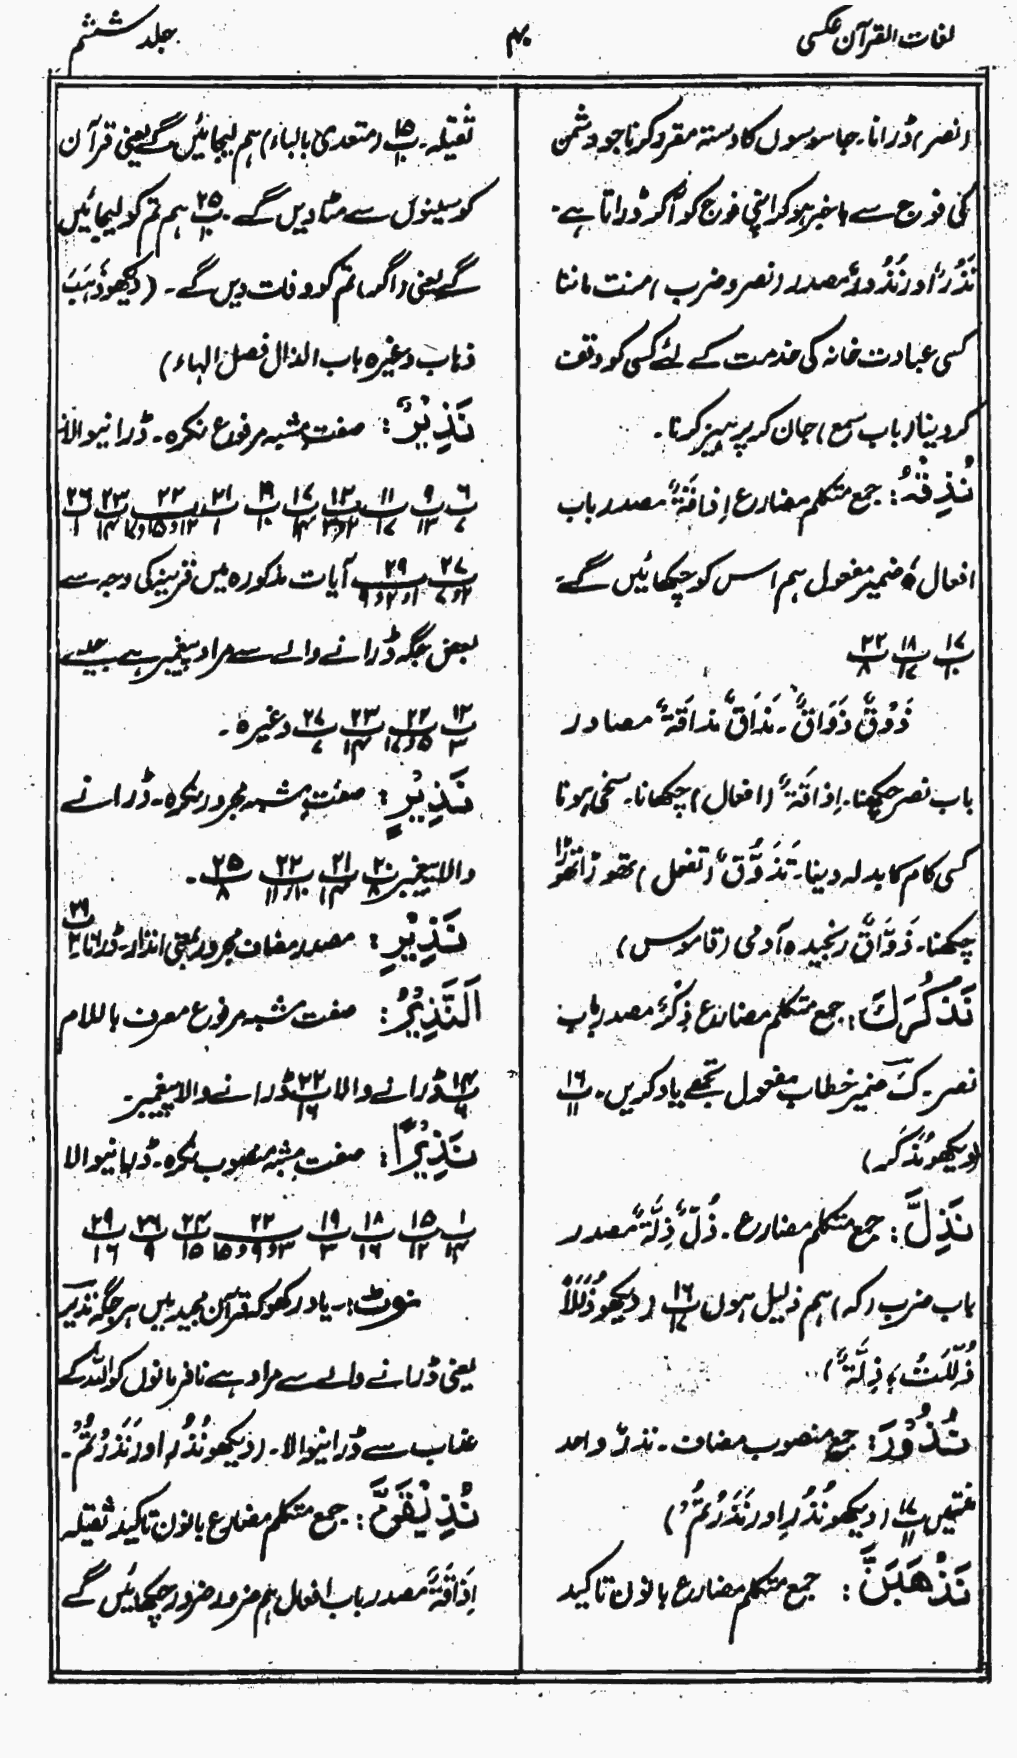 لغات القرآن عکسی
۴۰
جلد ششم
(نصر) ڈرانا۔ جاسوسوں کا دستہ مقرر کرنا جو دشمن
کی فوج سے باخبر ہو کر اپنی فوج کو آکر ڈراتا ہے۔
نَذْرٌ اور نُذُورٌ مصدر (نصر و ضرب) منت ماننا
کسی عبادت خانہ کی خدمت کے لئے کسی کو وقف
کر دینا (باب سمع) جان کر پرہیز کرنا۔
نُذِقْهُ: جمع متکلم مضارع اِذَاقَةٌ مصدر باب
افعال ہٗ ضمیر مفعول ہم اس کو چکھائیں گے
۱۷/۱۰ ۱۸/۱۷ ۲۲/۸
ذَوْقٌ ذَوَاقٌ۔ مَذَاقٌ مَذَاقَةٌ مصادر
باب نصر چکھنا۔ اِذَاقَةٌ (افعال) چکھانا۔ سخی ہونا
کسی کام کا بدلہ دینا۔ تَذَوُّقٌ (تفعل) تھوڑا تھوڑا
چکھنا۔ ذَوَّاقٌ رنجیدہ آدمی (قاموس)
نَذْكُرَكَ: جمع متکلم مضارع ذِكْرٌ مصدر باب
نصر۔ كَ ضمیر خطاب مفعول تجھے یاد کریں۔ ۱۶/۱۱
(دیکھو نَذْكُر)
نَذِلَّ: جمع متکلم مضارع۔ ذُلٌّ ذِلَّةٌ مصدر
باب ضرب (کہ) ہم ذلیل ہوں ۱۶/۱۷ (دیکھو ذُلُلًا
ذُلِّلَتْ، ذِلَّةٌ)
نُذُوْرَ: جمع منصوب مضاف۔ نذرٌ واحد
منتیں ۱۷/۱۱ (دیکھو نُذُرِ اور نَذَرْتُمْ)
نَذْهَبَنَّ: جمع متکلم مضارع بانون تاکید
ثقیلہ۔ ۱۵/۱۰ (متعدی بالباء) ہم لیجائیں گے یعنی قرآن
کو سینوں سے مٹا دیں گے۔ ۲۵/۱۰ ہم تم کو لیجائیں
گے یعنی (اگر) تم کو وفات دیں گے۔ (دیکھو ذَهَبَ
ذہاب وغیرہ باب الذال فصل الہاء)
نَذِيْرٌ: صفت مشبہ مرفوع نکرہ۔ ڈرانیوالا
۶/۷ ۹/۱۳ ۱۱/۱۷ ۱۲/۲و۳ ۱۷/۱۴ ۱۹/۱۰ ۲۱/۱ ۲۲/۱۲و۱۵و۱۷ ۲۳/۱۴ ۲۶/۱
۲۷/۲و۷ ۲۹/۱و۲و۹ آیات مذکورہ میں قرینہ کی وجہ سے
بعض جگہ ڈرانے والے سے مراد پیغمبر ہے جیسے
۱۲/۳ ۲۲/۱۵و۱۷ ۲۳/۱۴ ۲۷/۷ وغیرہ۔
نَذِيْرٍ: صفت مشبہ مجرور نکرہ۔ ڈرانے
والا پیغمبر ۲۰/۸ ۲۱/۱۴ ۲۲/۱۰و۱۱ ۲۵/۸۔
نَذِيْرِ: مصدر مضاف مجرور بمعنی انذار۔ ڈرانا ۲۹/۲
اَلنَّذِيْرُ: صفت مشبہ مرفوع معرف باللام
۱۴/۶ ڈرانے والا ۲۲/۱۶ ڈرانے والا پیغمبر۔
نَذِيْرًا: صفت مشبہ منصوب نکرہ۔ ڈرانیوالا
۱/۱۴ ۱۵/۱۲ ۱۸/۱۶ ۱۹/۳ ۲۲/۳و۹و۱۵ ۲۴/۱۵ ۲۶/۹ ۲۹/۱۶
نوٹ:۔ یاد رکھو کہ قرآن مجید میں ہر جگہ نذیر
یعنی ڈرانے والے سے مراد ہے نافرمانوں کو اللہ کے
عذاب سے ڈرانیوالا۔ (دیکھو نُذُرِ اور نَذَرْتُمْ)۔
نُذِيْقَنَّ: جمع متکلم مضارع بانون تاکید ثقیلہ
اِذَاقَةٌ مصدر باب افعال ہم ضرور ضرور چکھائیں گے